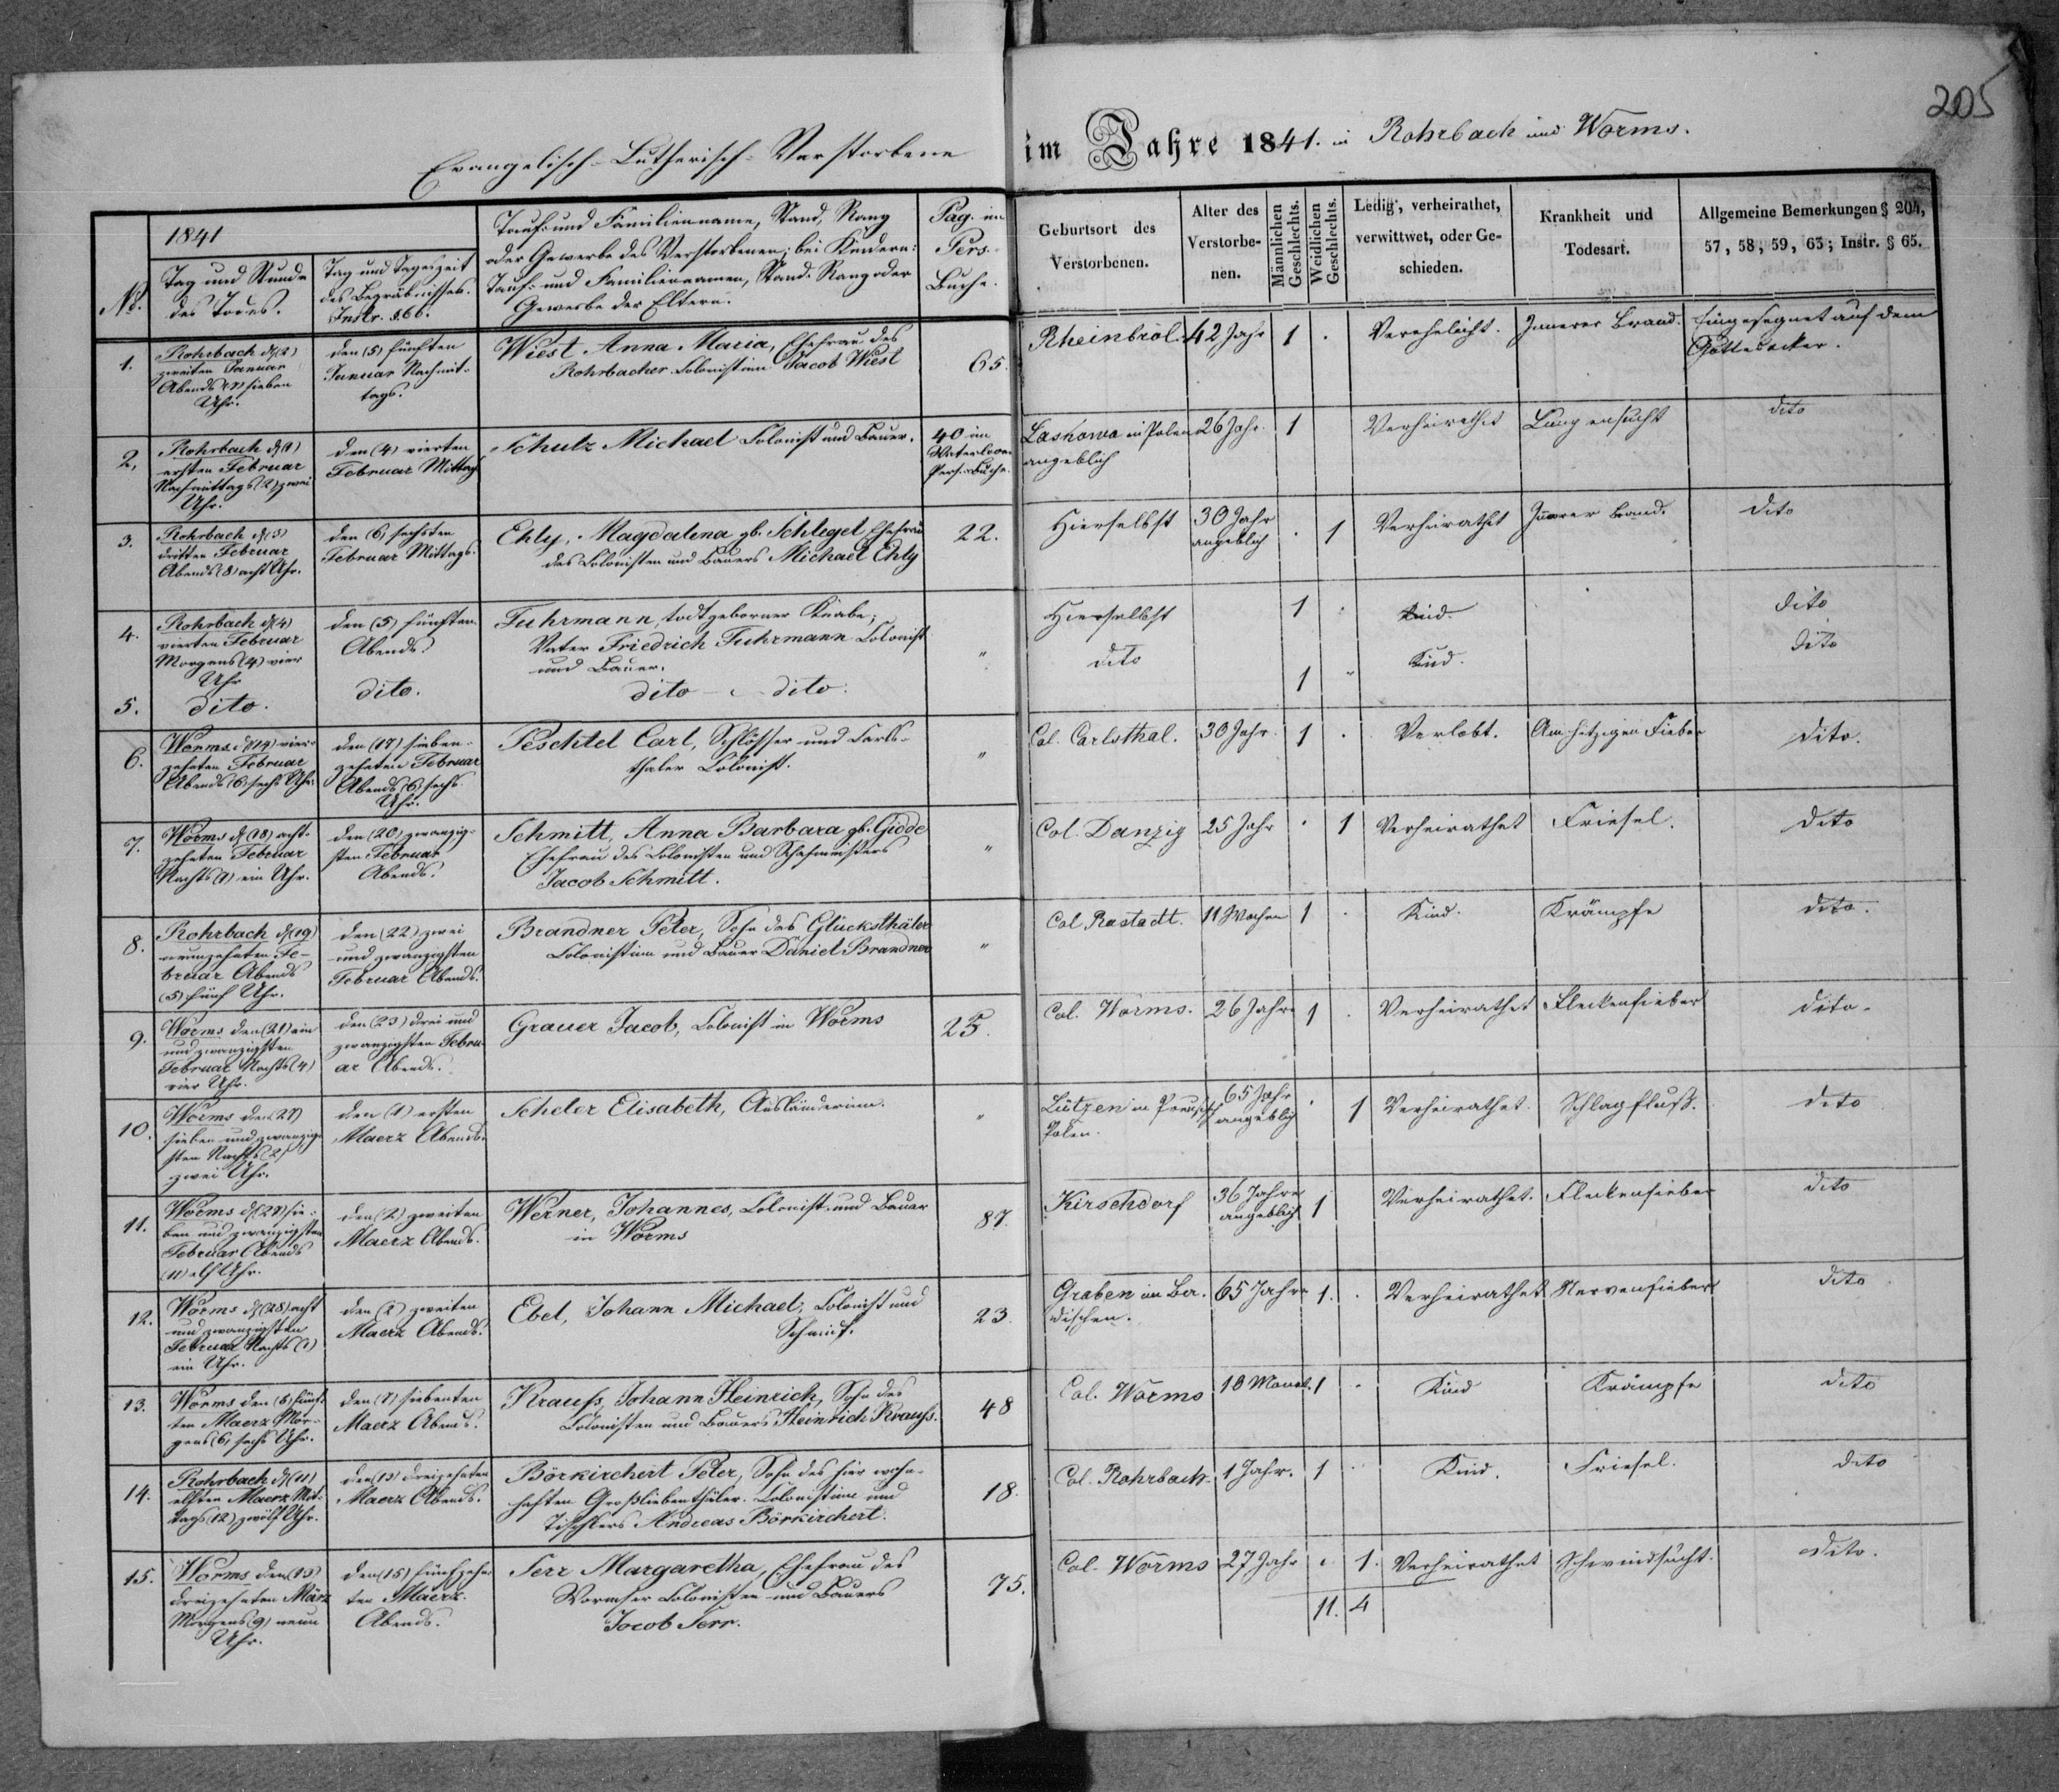 205
Evangelisch-Lutherisch-Verstorbene im Jahre 1841. in Rohrbach und Worms.
1841
No.
Tag und Stunde
des Todes.
Tag und Tageszeit
des Begräbnisses.
Instr. §.66.
Tauf- und Familienname, Stand, Rang
oder Gewerbe des Verstorbenen; bei Kindern:
Tauf- und Familiennamen, Stand, Rang oder
Gewerbe der Eltern.
Pag. im
Pers.
Buche.
Geburtsort des
Verstorbenen.
Alter des
Verstorbe-
nen.
Männlichen
Geschlechts.
Weiblichen
Geschlechts.
Ledig, verheirathet,
verwittwet, oder Ge-
schieden.
Krankheit und
Todesart.
Allgemeine Bemerkungen § 204,
57, 58, 59, 63; Instr. § 65.
1.
Rohrbach d. (2)
zweiten Januar
Abends (7) sieben
Uhr.
den (5) fünften
Januar Nachmit-
tags.
Wiest Anna Maria, Ehefrau des
Rohrbacher Colonisten Jacob Wiest
65.
Rheinbröl.
42 Jahr
1
Verehelicht.
Innerer Brand.
Eingesegnet auf dem
Gottesacker.
2.
Rohrbach d. (1)
ersten Februar
Nachmittags (2) zwei
Uhr.
den (4) vierten
Februar Mittag
Schulz Michael Colonist und Bauer.
40 im
Waterloo
Pers.-Buche.
Laskowa in Polen
angeblich
26 Jahr.
1
Verheirathet
Lungensucht
dito
3.
Rohrbach d. (3)
dritten Februar
Abends (8) acht Uhr.
den (6) sechsten
Februar Mittags.
Ehly, Magdalena gb. Schlegel, Ehefrau
des Colonisten und Bauers Michael Ehly
22.
Hierselbst
30 Jahr
angeblich
1
Verheirathet
Innerer Brand.
dito
4.
Rohrbach d. (4)
vierten Februar
Morgens (4) vier
Uhr
den (5) fünften
Abends.
Fuhrmann, todtgeborner Knabe;
Vater Friedrich Fuhrmann Colonist
und Bauer.
"
Hierselbst
1
Kind.
dito
5.
dito.
dito.
dito - dito.
dito
1
Kind.
dito
6.
Worms d. (14) vier-
zehnten Februar
Abends (6) sechs Uhr.
den (17) sieben-
zehnten Februar
Abends (6) sechs
Uhr.
Peschtel Carl, Schlosser und Carls-
thaler Colonist.
"
Col. Carlsthal.
30 Jahr.
1
Verlobt.
Am hitzigen Fieber
dito.
7.
Worms d. (18) acht-
zehnten Februar
Nachts (1) ein Uhr.
den (20) zwanzig-
sten Februar
Abends.
Schmitt, Anna Barbara gb. Gidde
Ehefrau des Colonisten und Schafmeisters
Jacob Schmitt.
"
Col. Danzig
25 Jahr
1
Verheirathet
Friesel.
dito
8.
Rohrbach d. (19)
neunzehnten Fe-
bruar Abends
(5) fünf Uhr.
den (22) zwei
und zwanzigsten
Februar Abends.
Brandner Peter, Sohn des Glücksthäler
Colonisten und Bauer Daniel Brandner
"
Col Rastadt.
11 Wochen
1
Kind.
Krämpfe
dito.
9.
Worms den (21) ein
und zwanzigsten
Februar Nachts (4)
vier Uhr.
den (23) drei und
zwanzigsten Febru-
ar Abends.
Grauer Jacob, Colonist in Worms
25.
Col. Worms.
26 Jahre
1
Verheirathet
Fleckenfieber
dito.
10.
Worms den (27)
sieben und zwanzig-
sten Nachts (2)
zwei Uhr.
den (1) ersten
Maerz Abends.
Scheler Elisabeth, Ausländerinn.
"
Lützen in Preusisch
Polen.
65 Jahr
angeblich
1
Verheirathet.
Schlagfluß.
dito
11.
Worms d. (27) sie-
ben und zwanzigsten
Februar Abends
(11) elf Uhr.
den (2) zweiten
Maerz Abends.
Werner, Johannes, Colonist und Bauer
in Worms
87.
Kirschdorf
36 Jahre
angeblich
1
Verheirathet.
Fleckenfieber
dito
12.
Worms d. (28) acht
und zwanzigsten
Februar Nachts (1)
ein Uhr.
den (2) zweiten
Maerz Abends.
Ebel, Johann Michael, Colonist und
Schmid.
23.
Graben im Ba-
dischen.
65 Jahre
1.
Verheirathet
Nervenfieber
dito
13.
Worms den (5) fünf-
ten Maerz Mor-
gens (6) sechs Uhr.
den (7) siebenten
Maerz Abends.
Krauss, Johann Heinrich, Sohn des
Colonisten und Bauers Heinrich Krauss.
48
Col. Worms
10 Monat.
1
Kind
Krämpfe
dito
14.
Rohrbach d. (11)
elften Maerz Mit-
tags (12) zwölf Uhr.
den (13) dreizehnten
Maerz Abends.
Börkirchert Peter, Sohn des hier wohn-
haften Großliebenthäler Colonisten und
Tischlers Andreas Börkirchert.
18.
Col. Rohrbach.
1 Jahr.
1
Kind.
Friesel.
dito
15.
Worms den (13)
dreizehnten März
Morgens (9) neun
Uhr.
den (15) fünfzehn-
ten Maerz
Abends.
Serr Margaretha, Ehefrau des
Wormser Colonisten und Bauers
Jacob Serr.
75.
Col. Worms
27 Jahr
1.
Verheirathet
Schwindsucht.
dito.
11. 4